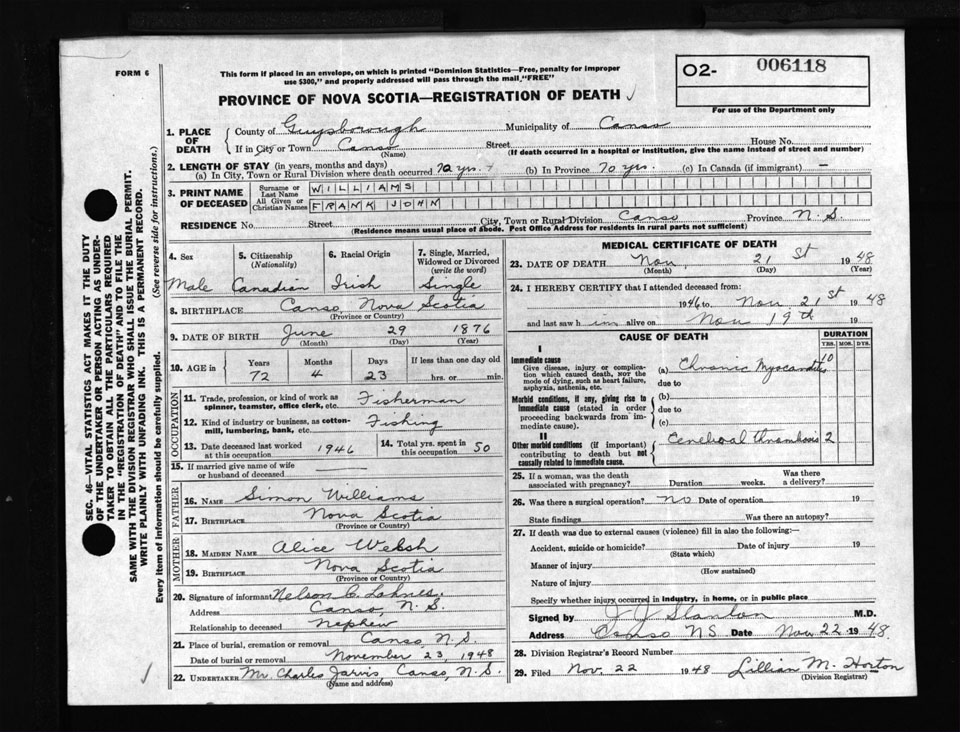 FORM 6
This form if placed in an envelope, on which is printed "Dominion Statistics—Free, penalty for improper
use $300," and properly addressed will pass through the mail "FREE"
O2- 006118
For use of the Department only
PROVINCE OF NOVA SCOTIA—REGISTRATION OF DEATH
1. PLACE OF DEATH
County of Guysborough Municipality of Canso
If in City or Town Canso Street House No.
(Name) (If death occurred in a hospital or institution, give the name instead of street and number)
2. LENGTH OF STAY (in years, months and days)
(a) In City, Town or Rural Division where death occurred 70 yrs. (b) In Province 70 yrs. (c) In Canada (if immigrant) —
3. PRINT NAME OF DECEASED
Surname or Last Name WILLIAMS
All Given or Christian Names FRANK JOHN
RESIDENCE No. Street City, Town or Rural Division Canso Province N.S.
(Residence means usual place of abode. Post Office Address for residents in rural parts not sufficient)
4. Sex
Male
5. Citizenship (Nationality)
Canadian
6. Racial Origin
Irish
7. Single, Married, Widowed or Divorced (write the word)
Single
8. BIRTHPLACE Canso, Nova Scotia
(Province or Country)
9. DATE OF BIRTH June 29 1876
(Month) (Day) (Year)
10. AGE in Years Months Days If less than one day old
72 4 23 hrs. or min.
OCCUPATION
11. Trade, profession, or kind of work as spinner, teamster, office clerk, etc. Fisherman
12. Kind of industry or business, as cotton-mill, lumbering, bank, etc. Fishing
13. Date deceased last worked at this occupation 1946
14. Total yrs. spent in this occupation 50
15. If married give name of wife or husband of deceased —
FATHER
16. NAME Simon Williams
17. BIRTHPLACE Nova Scotia
(Province or Country)
MOTHER
18. MAIDEN NAME Alice Welsh
19. BIRTHPLACE Nova Scotia
(Province or Country)
20. Signature of informant Nelson C. Lohnes.
Address Canso, N.S.
Relationship to deceased Nephew
21. Place of burial, cremation or removal Canso, N.S.
Date of burial or removal November 23, 1948
22. UNDERTAKER Mr. Charles Jarvis Canso, N.S.
(Name and address)
MEDICAL CERTIFICATE OF DEATH
23. DATE OF DEATH Nov. 21st 1948
(Month) (Day) (Year)
24. I HEREBY CERTIFY that I attended deceased from:
1946 to Nov 21st 1948
and last saw him alive on Nov 19th 19
CAUSE OF DEATH
DURATION
YRS. MOS. DYS.
I
Immediate cause
Give disease, injury or complication which caused death, not the mode of dying, such as heart failure, asphyxia, asthenia, etc.
(a) Chronic Myocarditis 10
due to
Morbid conditions, if any, giving rise to immediate cause (stated in order proceeding backwards from immediate cause).
(b)
due to
(c)
II
Other morbid conditions (if important) contributing to death but not causally related to immediate cause.
Cerebral thrombosis 2
25. If a woman, was the death associated with pregnancy? Duration weeks. Was there a delivery?
26. Was there a surgical operation? No Date of operation 19
State findings Was there an autopsy?
27. If death was due to external causes (violence) fill in also the following:—
Accident, suicide or homicide? Date of injury 19
(State which)
Manner of injury
(How sustained)
Nature of injury
Specify whether injury occurred in industry, in home, or in public place
Signed by J J Stanton M.D.
Address Canso NS Date Nov 22 1948.
28. Division Registrar's Record Number
29. Filed Nov. 22 1948 Lillian M. Horton
(Division Registrar)
SEC. 46—VITAL STATISTICS ACT MAKES IT THE DUTY
OF THE UNDERTAKER OR PERSON ACTING AS UNDER-
TAKER TO OBTAIN ALL THE PARTICULARS REQUIRED
IN THE "REGISTRATION OF DEATH" AND TO FILE THE
SAME WITH THE DIVISION REGISTRAR WHO SHALL ISSUE THE BURIAL PERMIT.
WRITE PLAINLY WITH UNFADING INK. THIS IS A PERMANENT RECORD.
Every item of information should be carefully supplied. (See reverse side for instructions.)